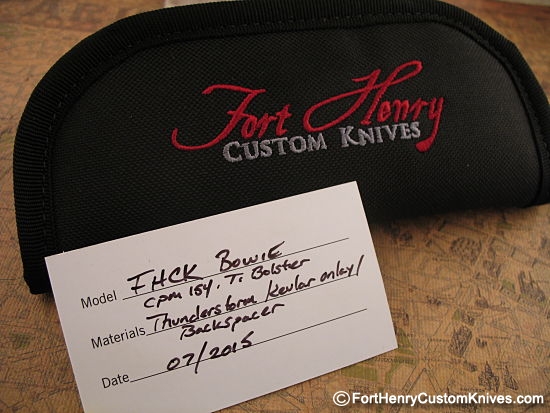 Fort Henry
CUSTOM KNIVES
Model FHCK BOWIE
CPM 154. Ti Bolster
Materials Thunderstorm Kevlar onlay/
Backspacer
Date 07/2015
©FortHenryCustomKnives.com